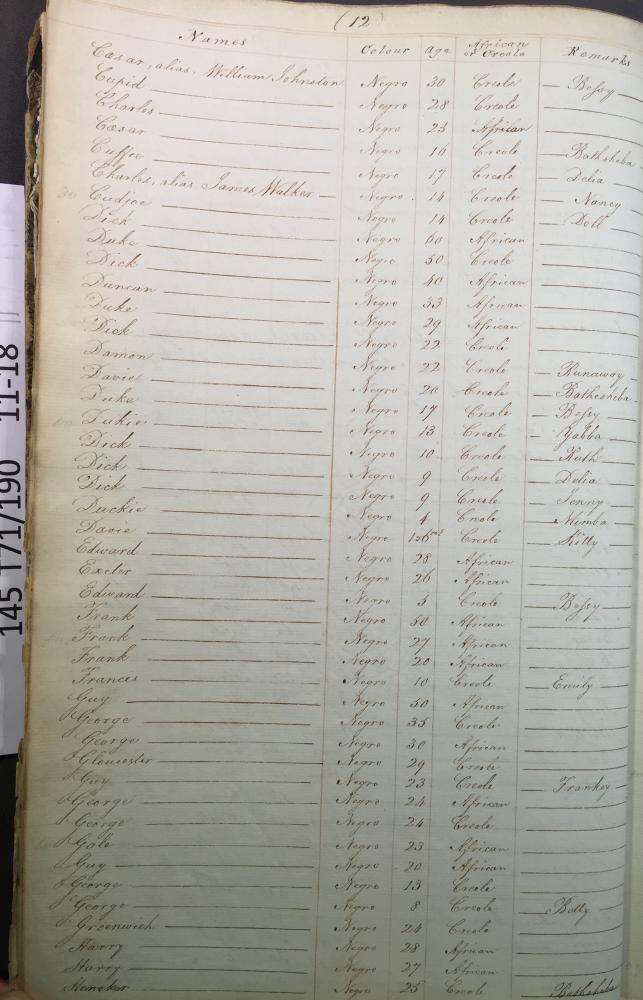 (12)
Names Colour Age African or Creole Remarks
Cæsar, alias, William Johnston Negro 30 Creole Bessy
Cupid Negro 28 Creole
Charles Negro 25 African
Cæsar Negro 16 Creole Bathsheba
Cuffee Negro 17 Creole Delia
Charles, alias James Walker Negro 14 Creole Nancy
Cudjoe Negro 14 Creole Doll
Dick Negro 60 African
Duke Negro 50 Creole
Dick Negro 40 African
Duncan Negro 33 African
Duke Negro 29 African
Dick Negro 22 Creole
Damon Negro 22 Creole Runaway
Davie Negro 20 Creole Bathesheba
Duke Negro 17 Creole Bessy
Dukie Negro 13 Creole Yabba
Dick Negro 10 Creole Ruth
Dick Negro 9 Creole Delia
Dick Negro 9 Creole Jenny
Duckie Negro 4 Creole Mimba
Davie Negro 1&6ms Creole Kitty
Edward Negro 28 African
Exeter Negro 26 African
Edward Negro 5 Creole Bessy
Frank Negro 50 African
Frank Negro 27 African
Frank Negro 20 African
Frances Negro 10 Creole Emily
Guy Negro 50 African
George Negro 35 Creole
George Negro 30 African
Gloucester Negro 29 Creole
Guy Negro 23 Creole Frankey
George Negro 24 African
George Negro 24 Creole
Gale Negro 23 African
Guy Negro 20 African
George Negro 13 Creole
George Negro 8 Creole Betty
Greenwich Negro 24 Creole
Harry Negro 28 African
Harry Negro 27 African
Heneker Negro 25 Creole Bathsheba
145 T71/190 11-18